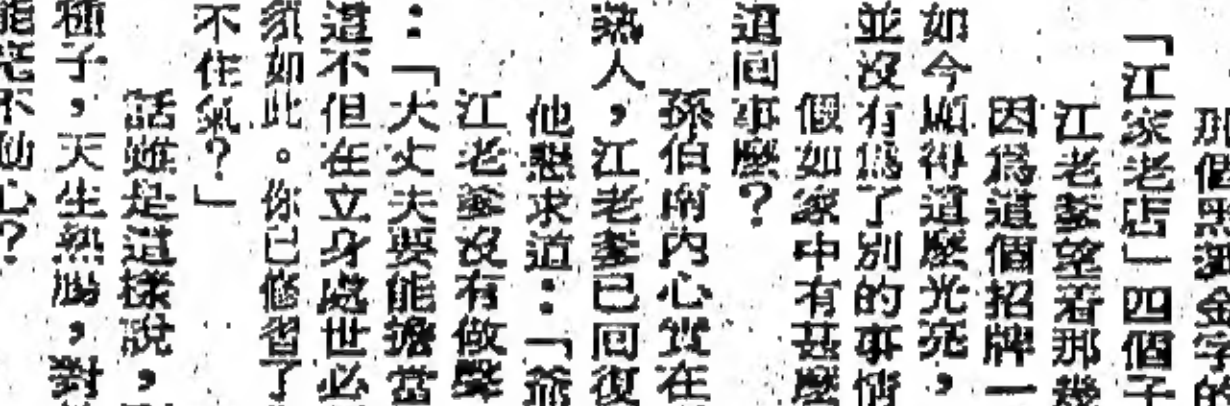 那個黑漆金字的
「江家老店」四個字
江老爹望着那幾
因爲這個招牌一
如今顯得這麼光亮，
並沒有爲了別的事情
假如家中有甚麼
這回事麼？
孫伯南內心實在
熟人，江老爹已回復
他懇求道：「爺
江老爹沒有做聲
：「大丈夫要能擔當
這不但在立身處世必
須如此。你已修習了
不住氣？」
話雖是這樣說，
種子，天生熱腸，對
能毫不動心？